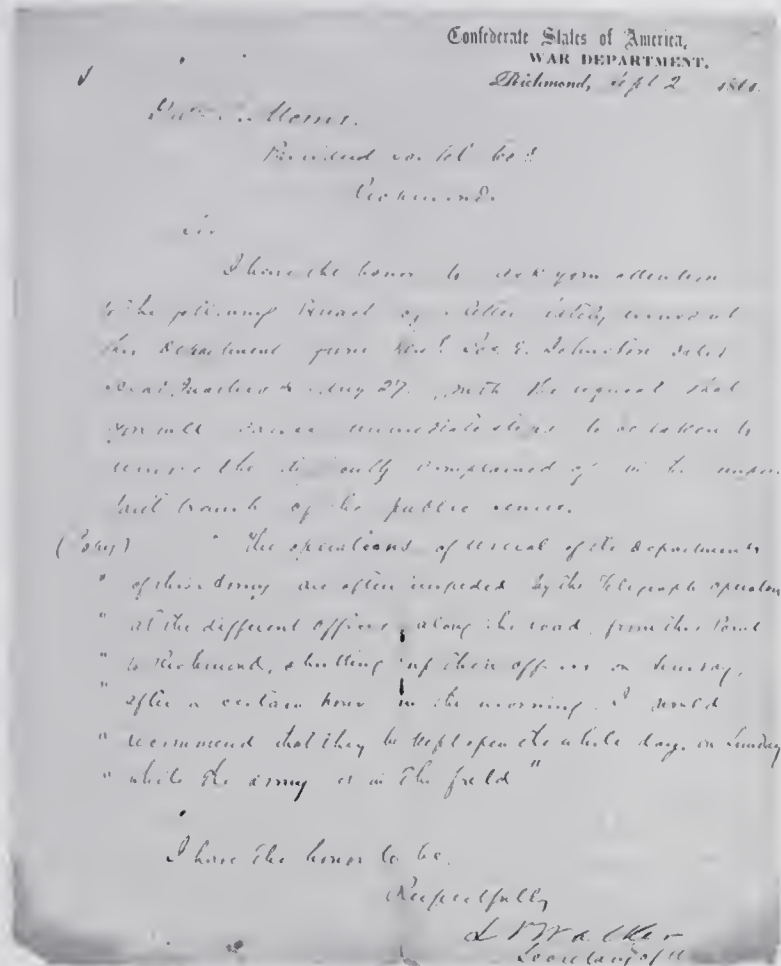 Confederate States of America,
WAR DEPARTMENT,
Richmond, Sept 2 1861.
Morris.
President Tel Co
Richmond.
Sir
I have the honor to ask your attention
to the following extract of letter lately received at
this Department from Genl. Jos. E. Johnston dated
Head Quarters Aug 27. with the request that
you will cause immediate steps to be taken to
remove the difficulty complained of in the impor-
tant branch of the public service.
(Copy) " The operations of several of the departments
" of this Army are often impeded by the Telegraph operators
" at the different offices, along the road, from this Point
" to Richmond, shutting up their offices on Sunday,
" after a certain hour in the morning. I would
" recommend that they be kept open the whole day, on Sunday
" while the army is in the field "
I have the honor to be.
Respectfully
L P Walker
Secretary of W